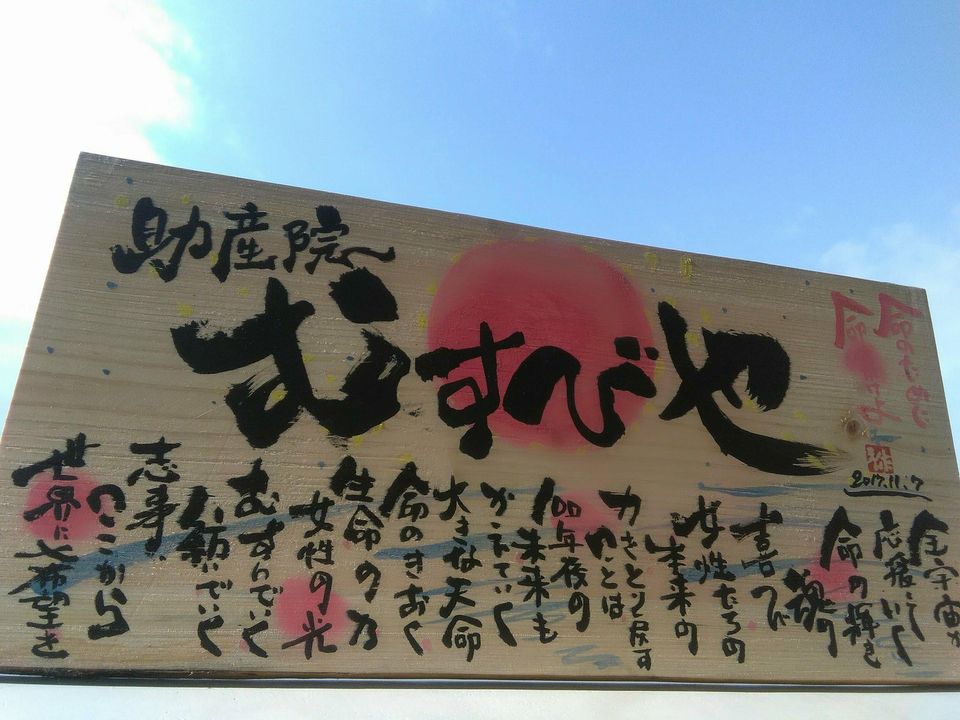 助産院
むすびや
命のはじめ
2017.11.7
全宇宙が
応援していく
命の輝き
魂の
喜こび
女性たちの
本来の
力をとり戻す
のことは
100年後の
未来も
かえていく
大きな天命
命のきおく
生命の力
女性の光
むすんでいく
紡いでいく
志事。
ここから
世界に希望を